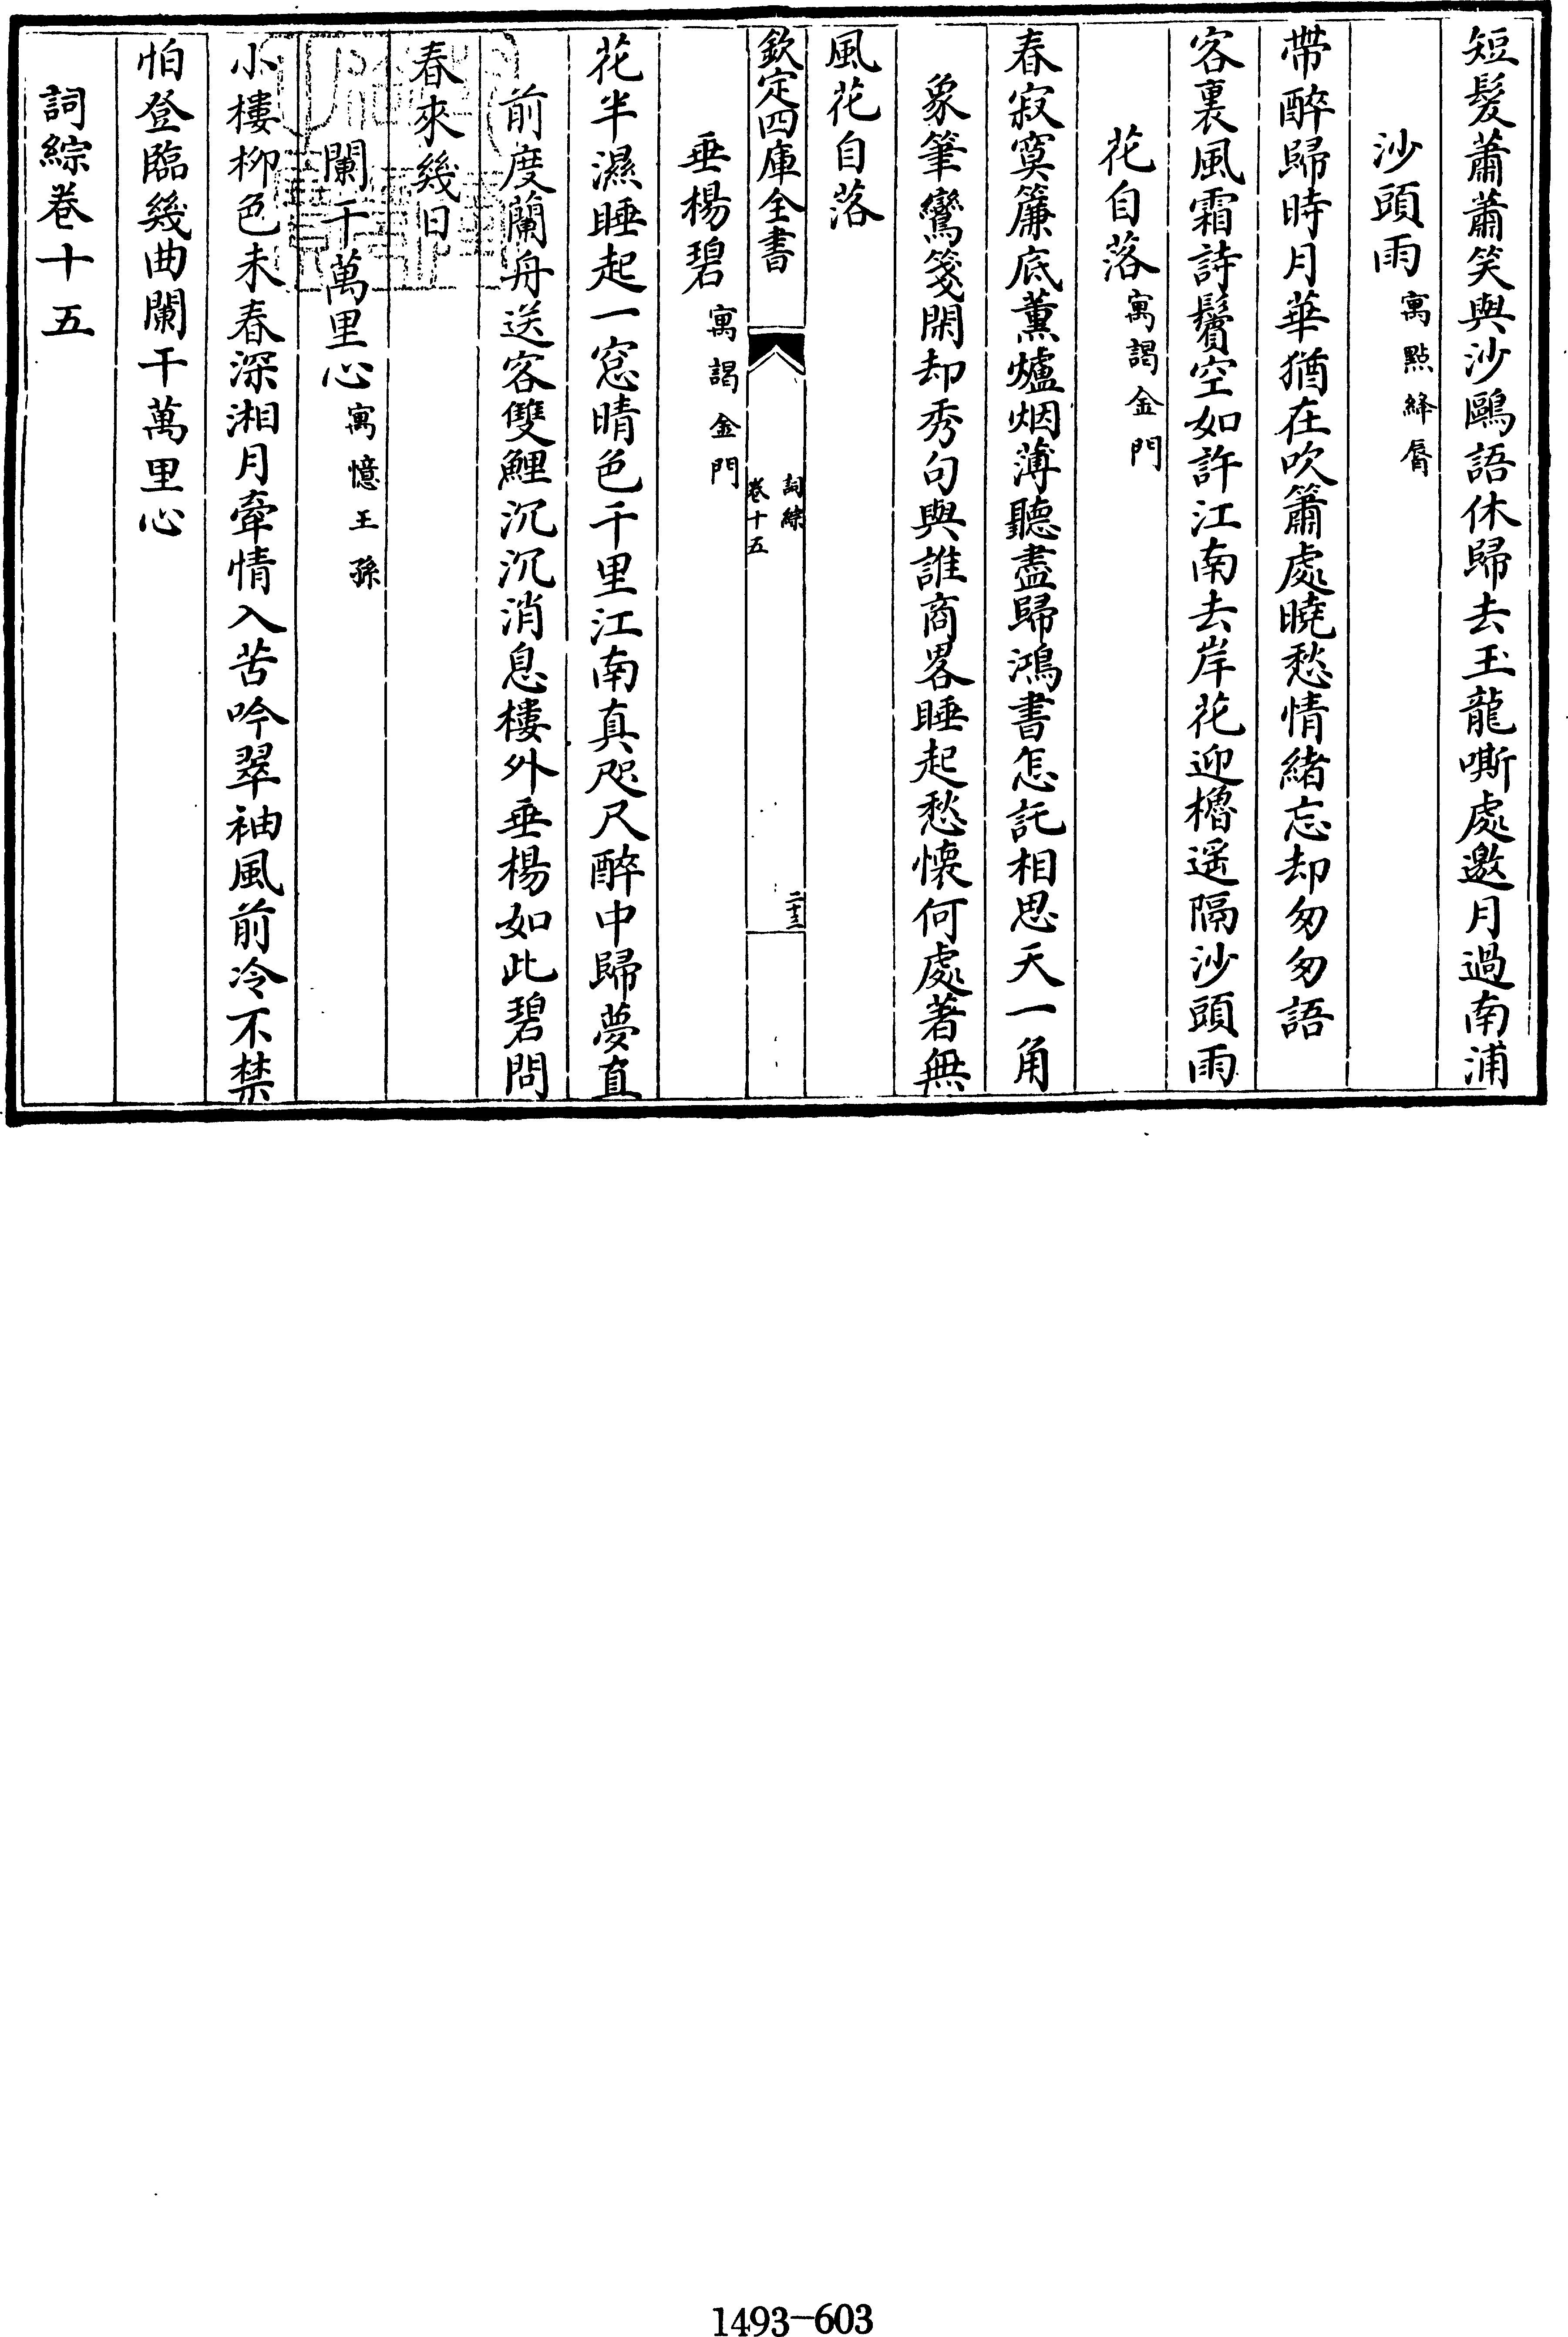 短髮蕭蕭笑與沙鷗語休歸去玉龍嘶處邀月過南浦
沙頭雨寓點絳脣
帶醉歸時月華猶在吹簫處曉愁情緒忘却匆匆語
客裏風霜詩鬢空如許江南去岸花迎櫓遥隔沙頭雨
花自落寓謁金門
春寂寞簾底薰爐烟薄聽盡歸鴻書怎託相思天一角
象筆鸞箋閑却秀句與誰商畧睡起愁懷何處著無
風花自落
欽定四庫全書
詞綜
卷十五
二十三
垂楊碧寓謁金門
花半濕睡起一窓晴色千里江南真咫尺醉中歸夢直
前度蘭舟送客雙鯉沉沉消息樓外垂楊如此碧問
春來幾日
闌干萬里心寓憶王孫
小樓柳色未春深湘月牽情入苦吟翠袖風前冷不禁
怕登臨幾曲闌干萬里心
詞綜卷十五
1493-603